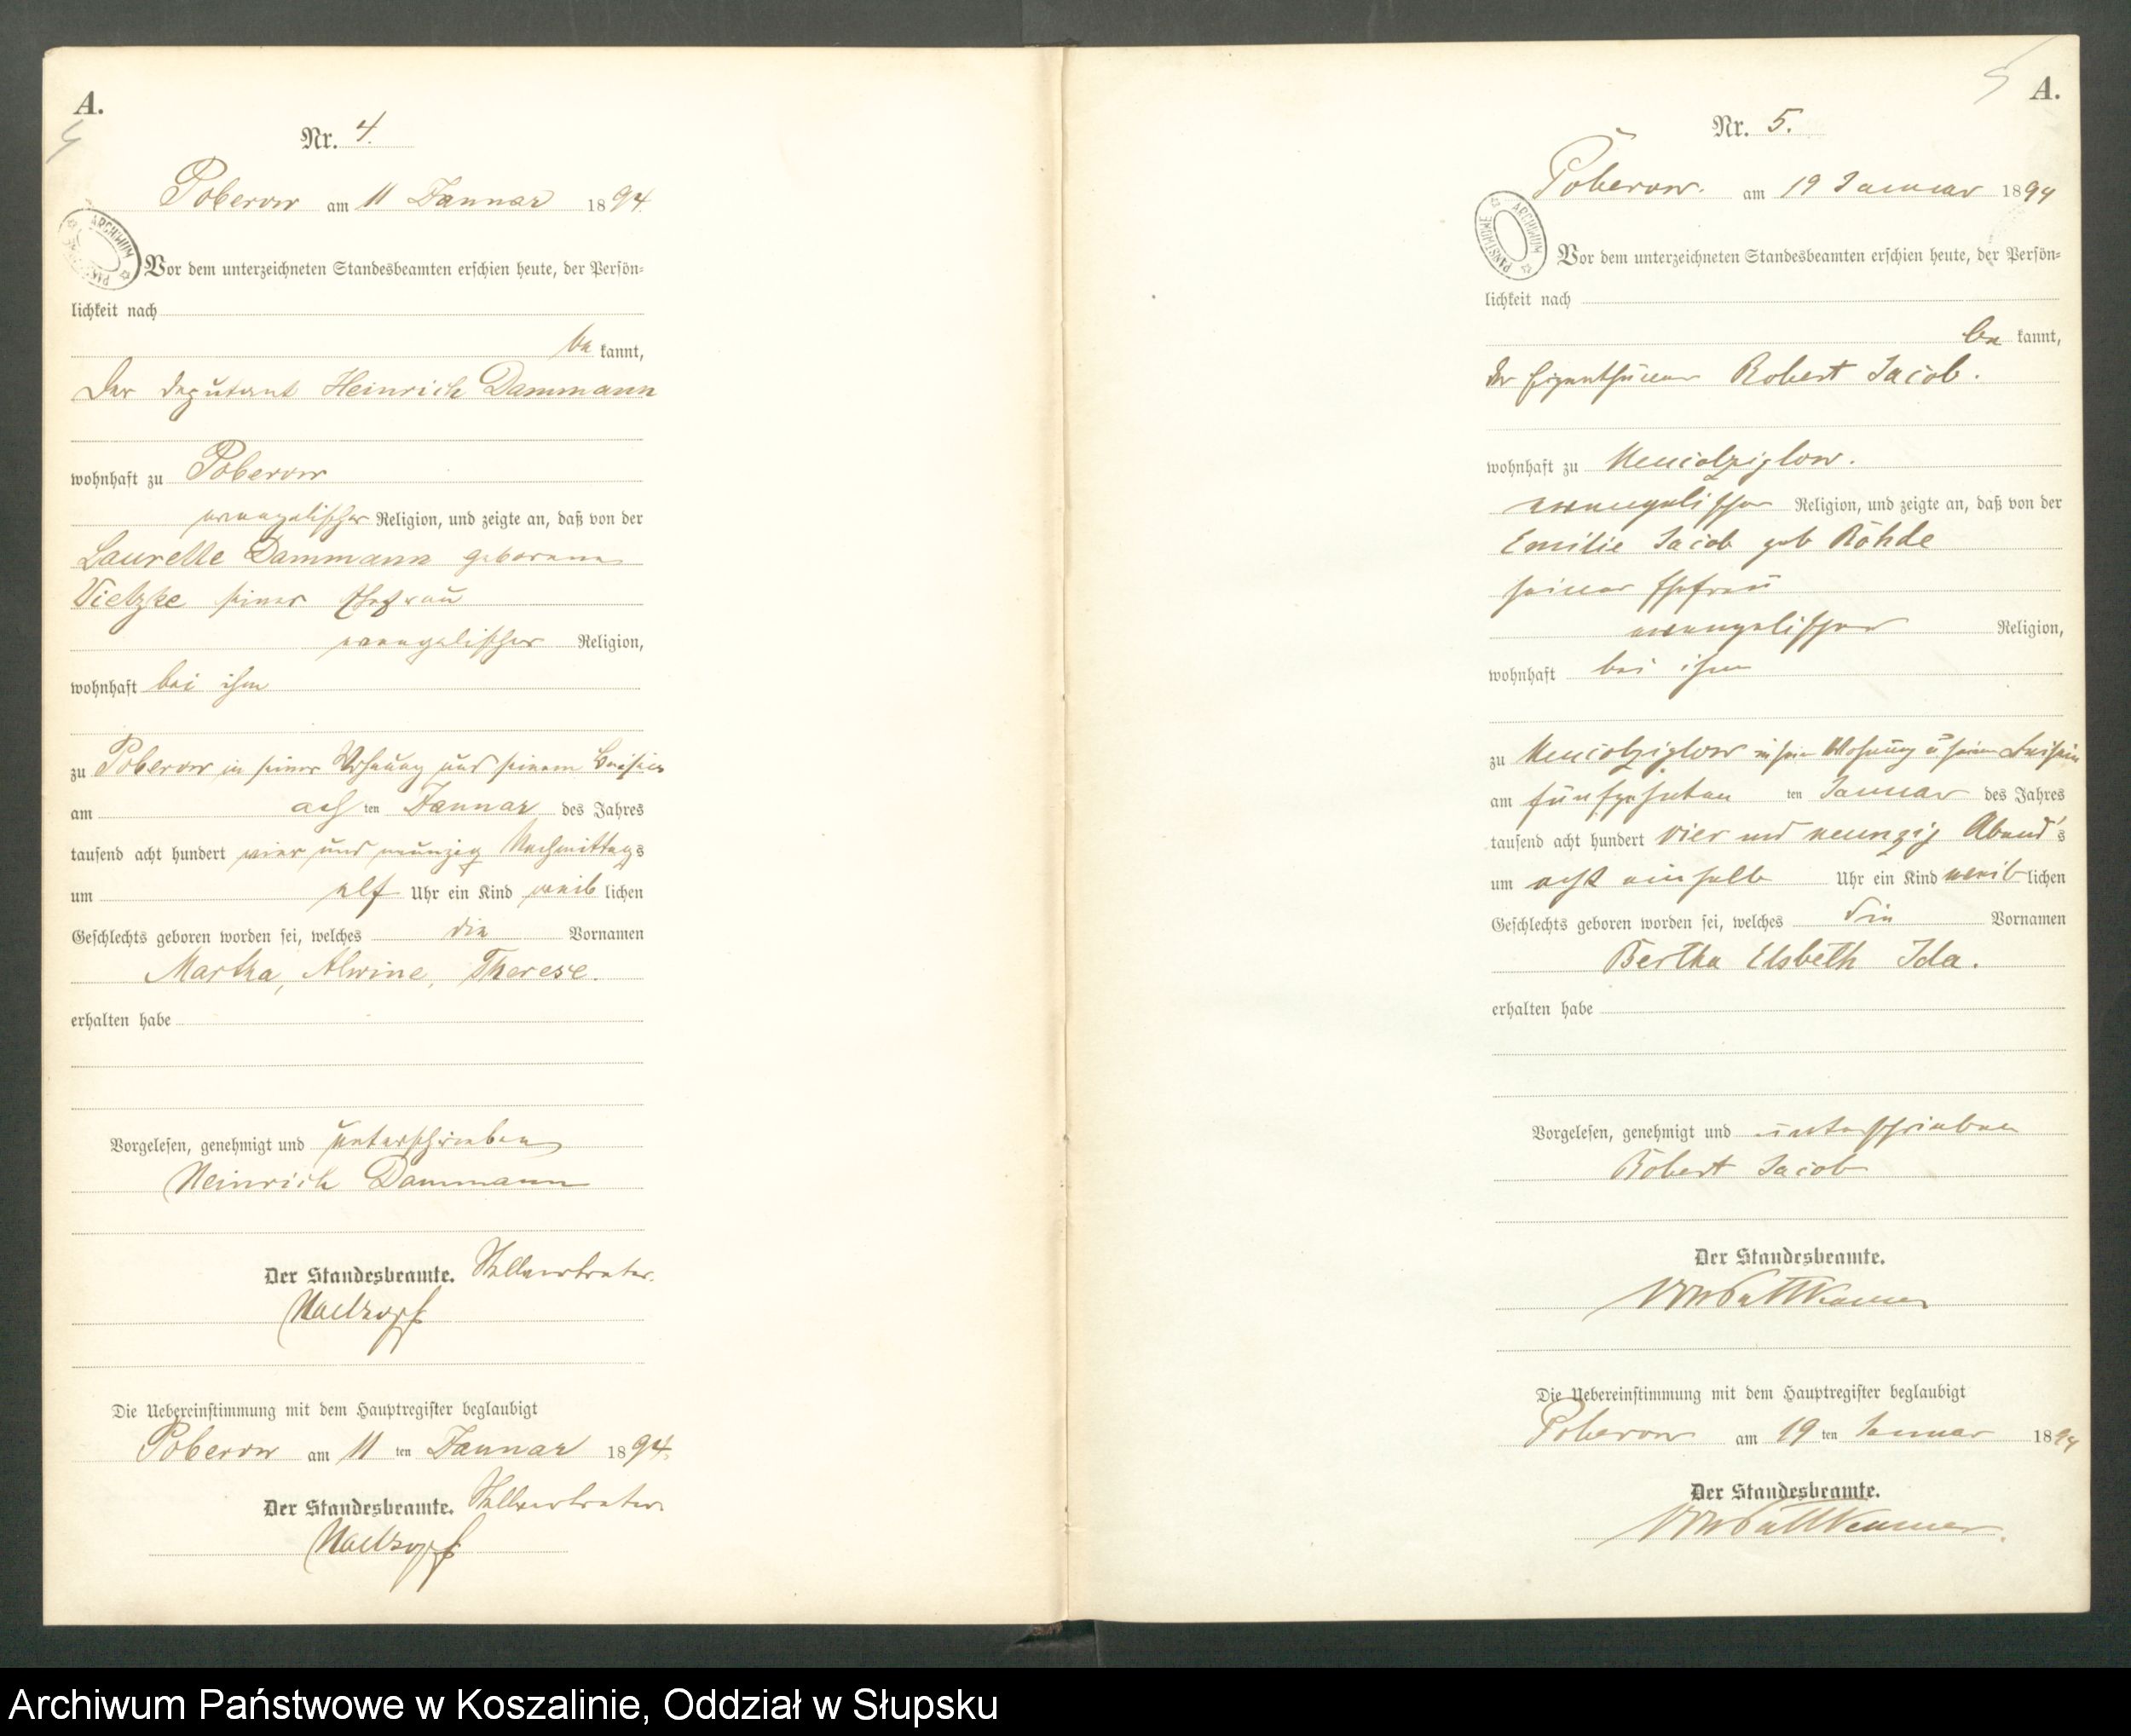 A.
4
Nr. 4.
Poberow am 11 Januar 1894.
ARCHIWUM PAŃSTWOWE
Vor dem unterzeichneten Standesbeamten erschien heute, der Persön=
lichkeit nach
be kannt,
Der Deputant Heinrich Dammann
wohnhaft zu Poberow
evangelischer Religion, und zeigte an, daß von der
Laurette Dammann geborene
Vietzke seiner Ehefrau
evangelischer Religion,
wohnhaft bei ihm
zu Poberow in seiner Wohnung und seinem Beisein
am ach ten Januar des Jahres
tausend acht hundert vier und neunzig Nachmittags
um elf Uhr ein Kind weib lichen
Geschlechts geboren worden sei, welches die Vornamen
Martha, Alwine, Therese.
erhalten habe
Vorgelesen, genehmigt und unterschrieben
Heinrich Dammann
Der Standesbeamte. Stellvertreter.
Die Uebereinstimmung mit dem Hauptregister beglaubigt
Poberow am 11 ten Januar 1894.
Der Standesbeamte. Stellvertreter
5 A.
Nr. 5.
Poberow. am 19 Januar 1894
ARCHIWUM PAŃSTWOWE
Vor dem unterzeichneten Standesbeamten erschien heute, der Persön=
lichkeit nach
be kannt,
der Eigenthümer Robert Jacob.
wohnhaft zu Neucolziglow.
evangelischer Religion, und zeigte an, daß von der
Emilie Jacob geb Röhde
seiner Ehefrau
evangelischer Religion,
wohnhaft bei ihm
zu Neucolziglow in sein Wohnung u seinem Beisein
am fünfzehnten ten Januar des Jahres
tausend acht hundert vier und neunzig Abend's
um acht ein halb Uhr ein Kind weib lichen
Geschlechts geboren worden sei, welches die Vornamen
Bertha Elsbeth Ida.
erhalten habe
Vorgelesen, genehmigt und unterschrieben
Robert Jacob
Der Standesbeamte.
Die Uebereinstimmung mit dem Hauptregister beglaubigt
Poberow am 19 ten Januar 1894
Der Standesbeamte.
Archiwum Państwowe w Koszalinie, Oddział w Słupsku